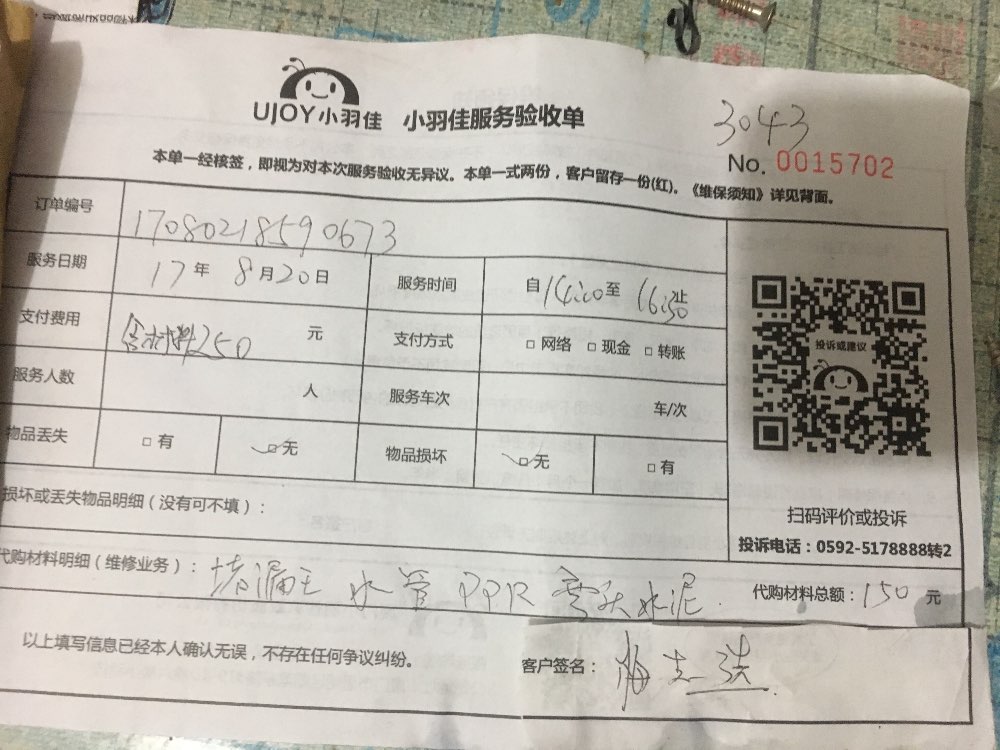 UJOY小羽佳 小羽佳服务验收单
3043
No. 0015702
本单一经核签，即视为对本次服务验收无异议。本单一式两份，客户留存一份(红)。《维保须知》详见背面。
订单编号 17080218590673
服务日期 17年 8月20日 服务时间 自14:00至 16:30止
支付费用 含材料250 元 支付方式 □ 网络 □ 现金 □ 转账
服务人数 人 服务车次 车/次
物品丢失 □ 有 □ 无 物品损坏 □ 无 □ 有
投诉或建议
扫码评价或投诉
投诉电话：0592-5178888转2
损坏或丢失物品明细（没有可不填）：
代购材料明细（维修业务）： 堵漏王 水管 PPR 水泥 代购材料总额：150 元
以上填写信息已经本人确认无误，不存在任何争议纠纷。 客户签名：